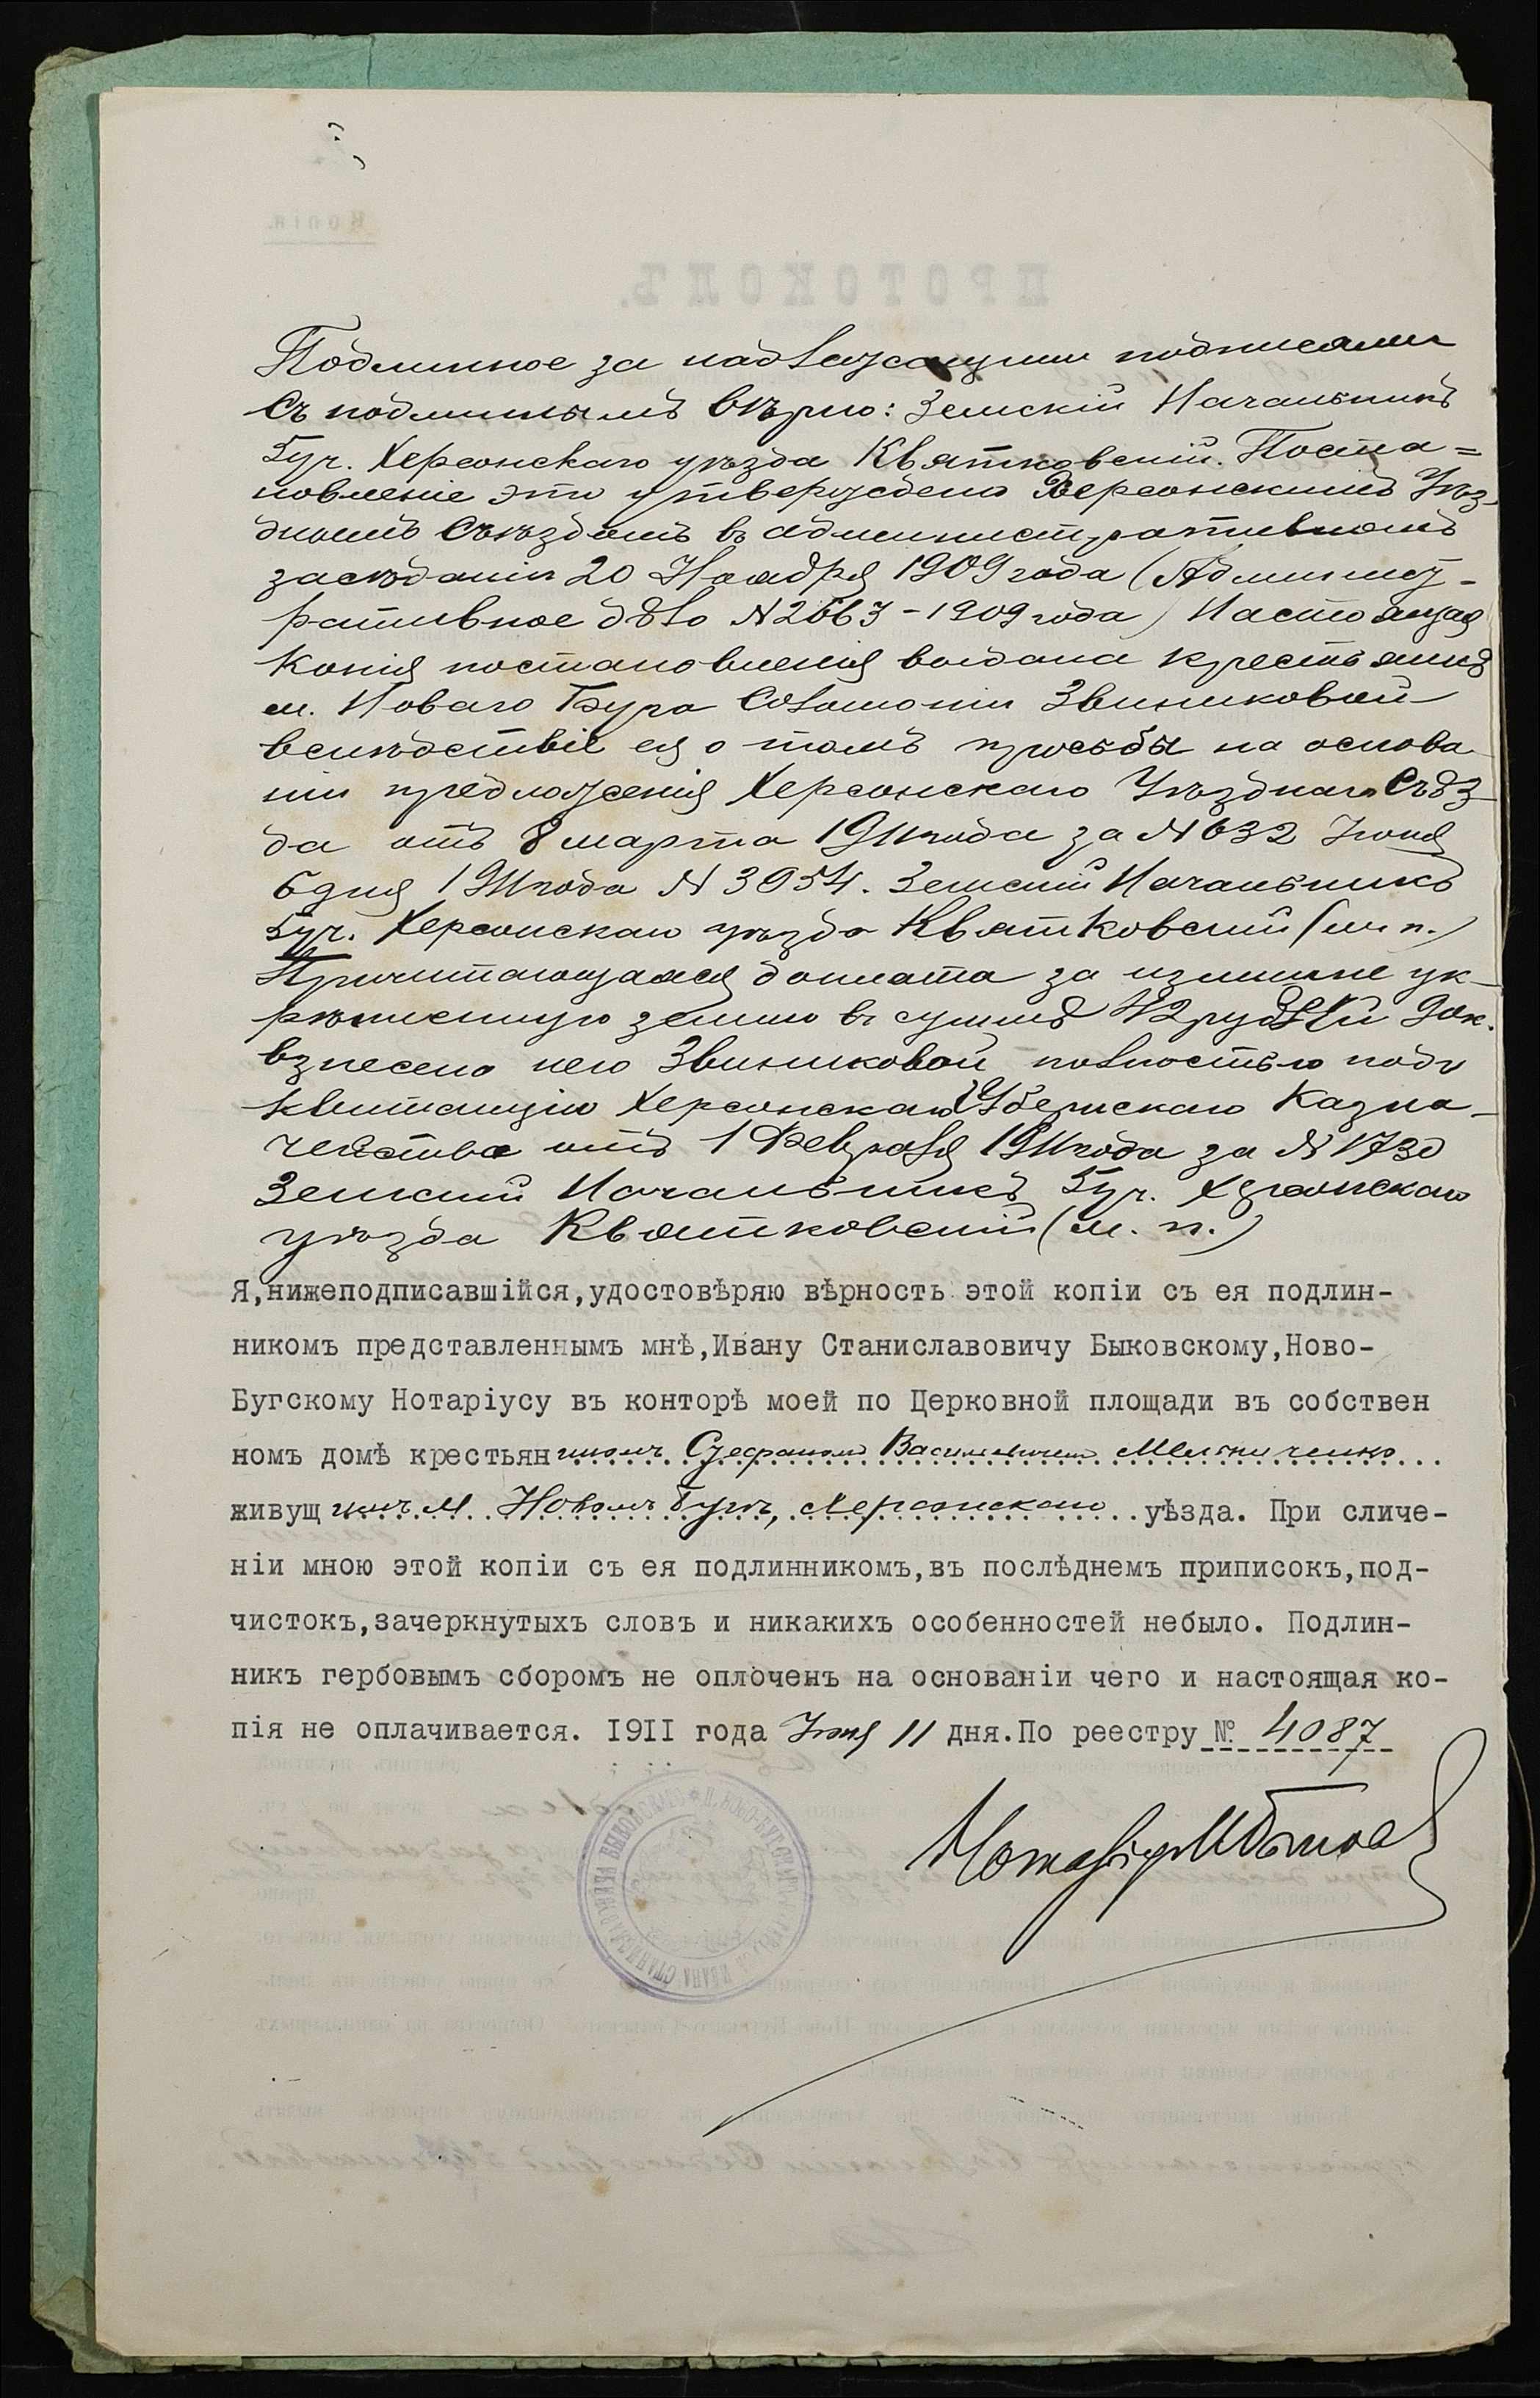 Подлинное за надлежащими подписями
Съ подлиннымъ вѣрно: Земскій Начальникъ
5 уч. Херсонскаго уѣзда Квятковскій. Поста=
новленіе это утверждено Херсонскимъ Уѣз-
днымъ Съѣздомъ въ административномъ
засѣданіи 20 Ноября 1909 года (Админист-
ративное дѣло № 2663 - 1909 года) Настоящая
копія постановленія выдана крестьянкѣ
м. Новаго Буга Соломоніи Звинниковой
вслѣдствіе ея о томъ просьбы на основа-
ніи предложенія Херсонскаго Уѣзднаго Съѣз-
да отъ 8 марта 1911 года за № 632 Іюня
6 дня 1911 года № 3954. Земскій Начальникъ
5 уч. Херсонскаго уѣзда Квятковскій (м. п.)
Причитающаяся доплата за излишне ук-
рѣпленную землю въ суммѣ 42 рублей 90 к.
взнесена нею Звинниковой полностью подъ
квитанцію Херсонскаго Губернскаго Казна-
чейства отъ 1 Февраля 1911 года за № 1730
Земскій Начальникъ 5 уч. Херсонскаго
уѣзда Квятковскій (м. п.)
Я,нижеподписавшійся,удостовѣряю вѣрность этой копіи съ ея подлин-
никомъ представленнымъ мнѣ,Ивану Станиславовичу Быковскому,Ново-
Бугскому Нотаріусу въ конторѣ моей по Церковной площади въ собствен
номъ домѣ крестьяниномъ Стефаномъ Васильевичемъ Мельниченко
живущимъ м. Новомъ Бугѣ, Херсонскаго уѣзда. При сличе-
ніи мною этой копіи съ ея подлинникомъ,въ послѣднемъ приписокъ,под-
чистокъ,зачеркнутыхъ словъ и никакихъ особенностей небыло. Подлин-
никъ гербовымъ сборомъ не оплоченъ на основаніи чего и настоящая ко-
пія не оплачивается. 1911 года Іюня 11 дня.По реестру № 4087
Нотаріусъ